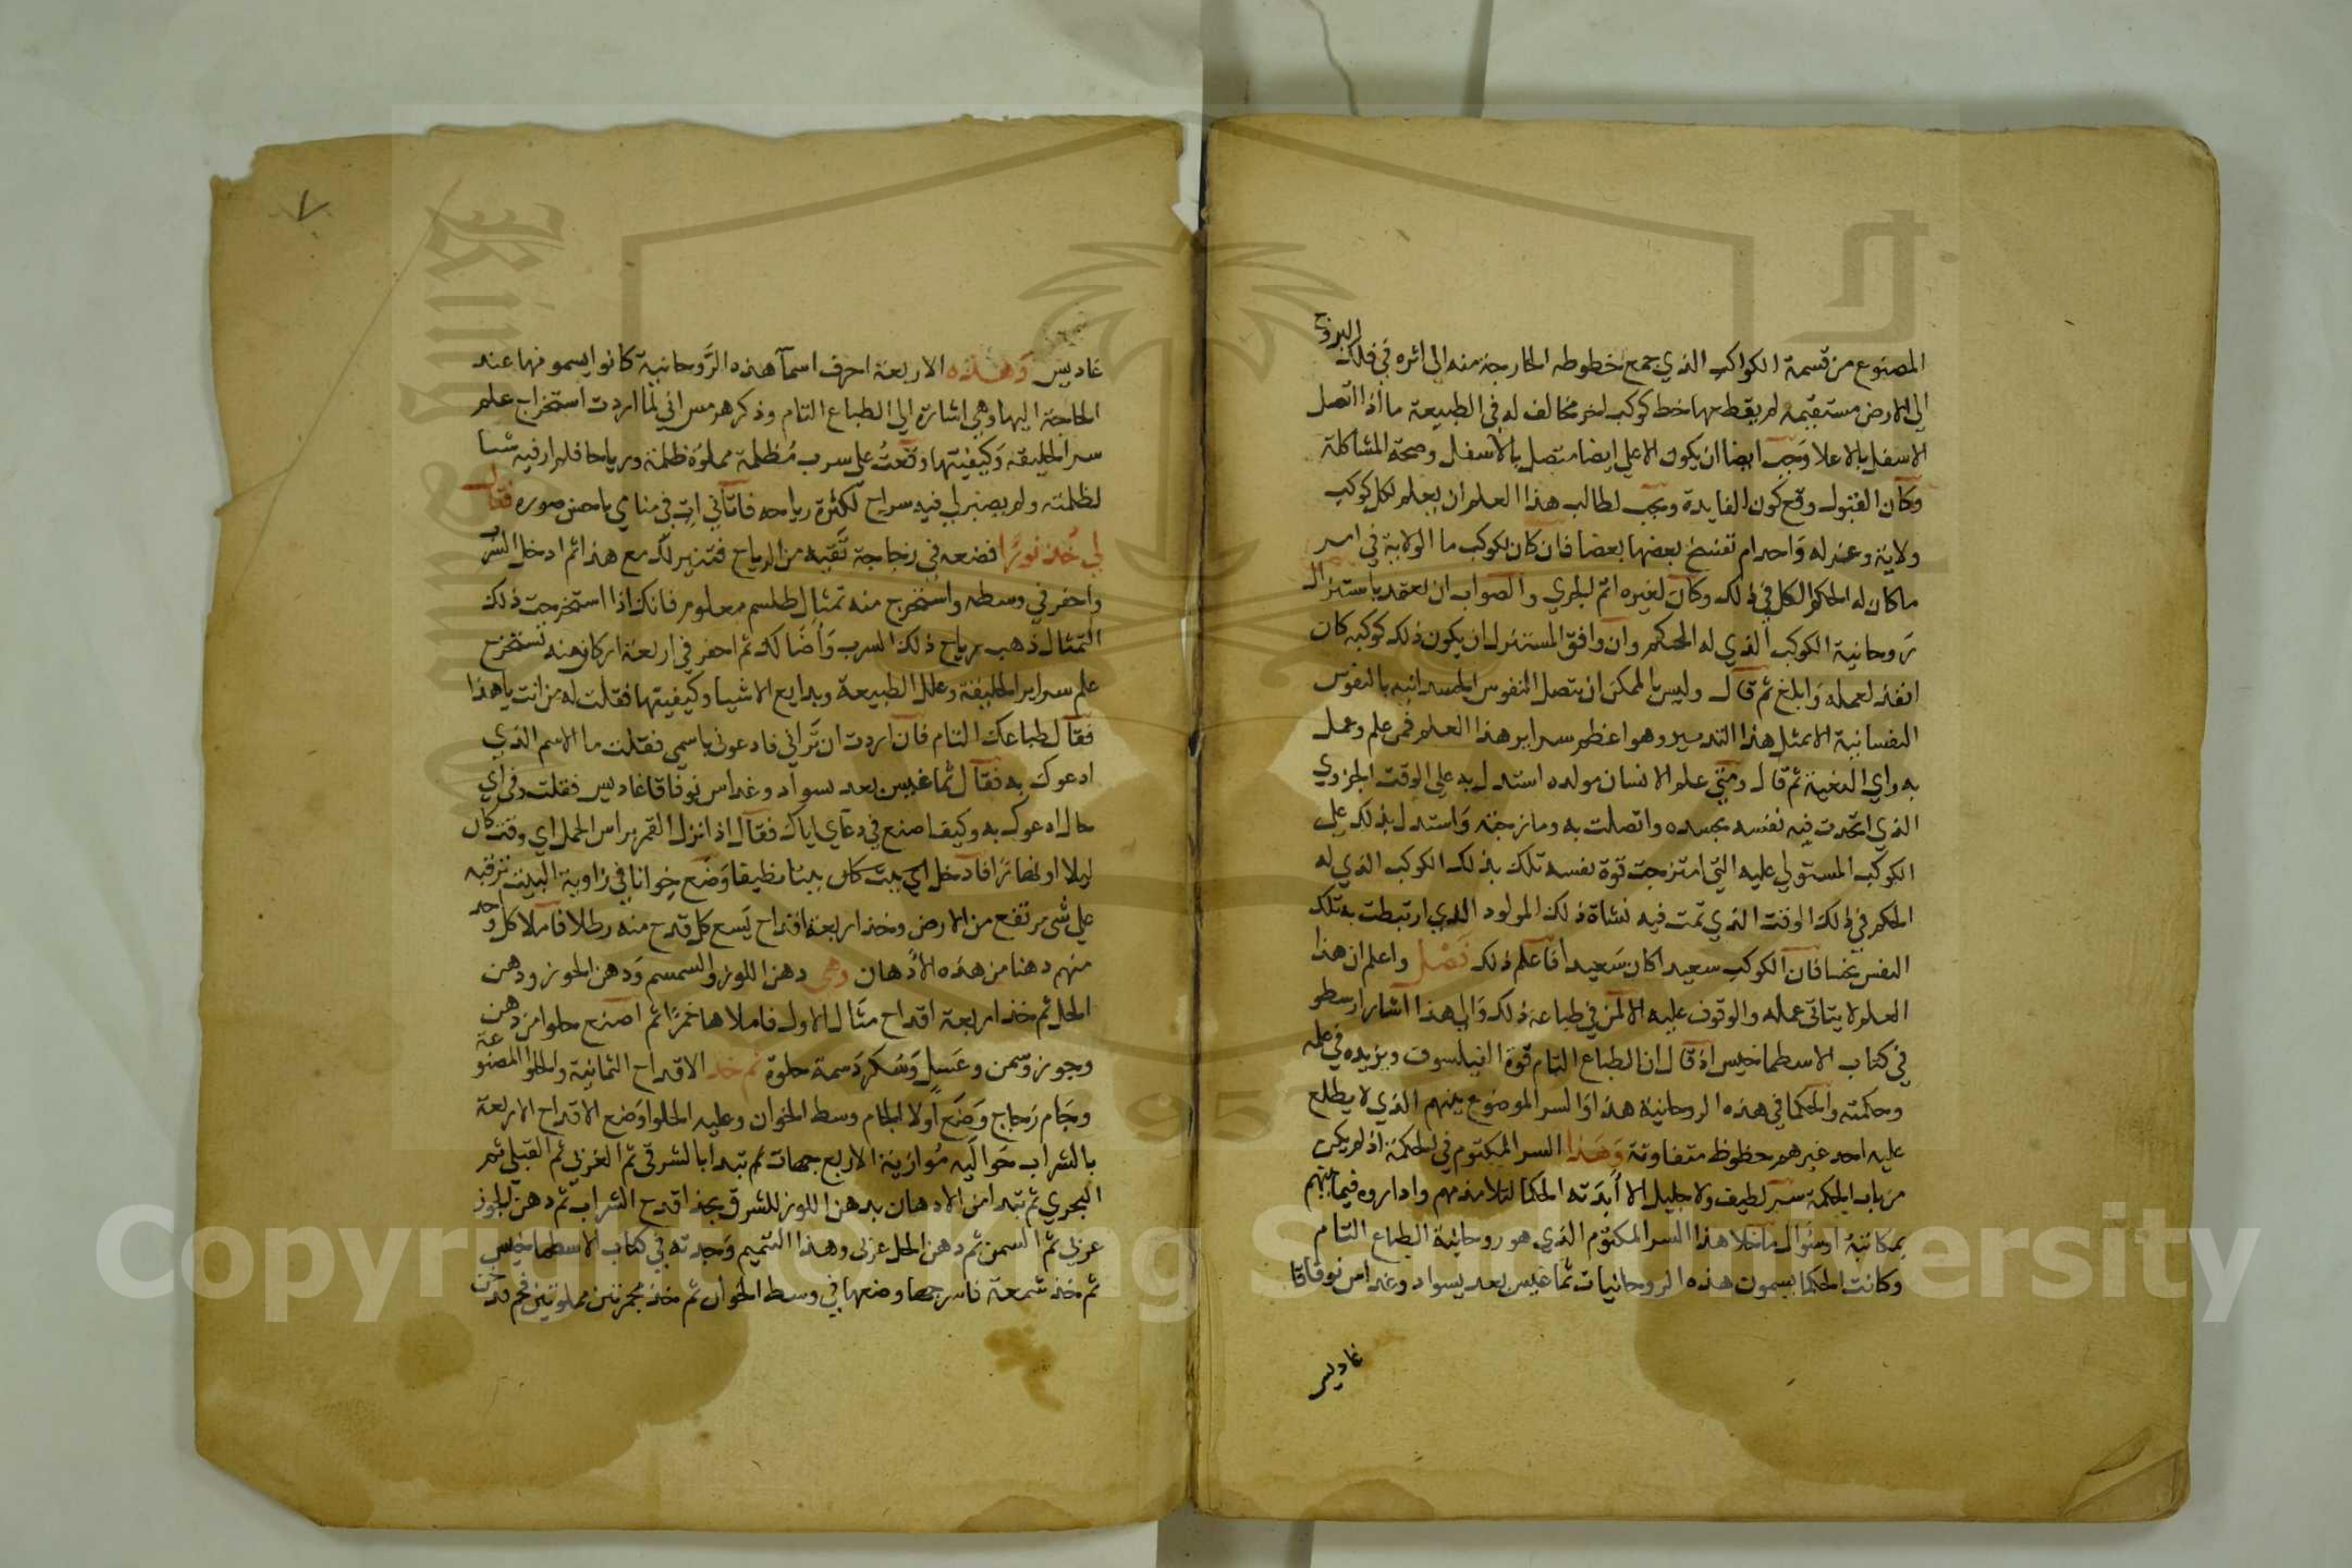 البروج
المصنوع من قسمة الكواكب الذي جمع خطوطه الخارجة منه الى اثره في فلك
الى الارض مستقيمه لم يقطعها خط كوكب اخر مخالف له في الطبيعة ما اذا اتصل
الاسفل بالاعلا وجب ايضا ان يكون الاعلى ايضا متصل بالاسفل وصحة المشاكلة
وكان القبول وقع كون الفايدة ويجب لطالب هذا العلم ان يعلم لكل كوكب
ولاية وعزله واحدام تفسخ بعضها بعضا فان كان لكوكب ما الولاية في امر
ما كان له الحكم الكل في ذلك وكان لغيره اثم الجري والصواب ان يعتمد باستنزال
روحانية الكوكب الذي له الحكم وان وافق المستنزل ان يكون ذلك كوكبه كان
انفذ لعمله وابلغ ثم قال وليس بالممكن ان يتصل النفوس الجسدانيه بالنفوس
النفسانية الا بمثل هذا التدبير وهو اعظم سراير هذا العلم فمن علم وعمل
به راي البغية ثم قال ومتى علم الانسان مولده استدل به على الوقت الجزوي
الذي اتحدت فيه نفسه بجسده واتصلت به ومازجته واستدل بذلك على
الكوكب المستولي عليه التي امتزجت قوة نفسه تلك بذلك الكوكب الذي له
الحكم في ذلك الوقت الذي تمت فيه نشاة ذلك المولود الذي ارتبطت به تلك
النفس نحسا فان الكوكب سعيدا كان سعيدا فاعلم ذلك فصل واعلم ان هذا
العلم لا يتاتى عمله والوقوف عليه الا لمن في طباعه ذلك والى هذا اشار ارسطو
في كتاب الاسطماخيس اذ قال ان الطباع التام قوة الفيلسوف ويزيده في علمه
وحكمته والحكما في هذه الروحانية هذا والسر الموضوع بينهم الذي لا يطلع
عليه احد غيرهم حظوظ متفاوتة وهذا السر المكتوم في الحكمة اذ لم يكن
من باب الحكمة سر لطيف ولا جليل الا أبدته الحكما لتلامذتهم واداروه فيما بينهم
بمكاتبة او سؤال ما خلا هذا السر المكتوم الذي هو روحانية الطباع التام
وكانت الحكما يسمون هذه الروحانيات تماغيس بعد يسواد وغداس نوفاقا
غاديس
٧
غاديس وهذه الاربعة احرف اسمآ هذه الروحانية كانوا يسمونها عند
الحاجة اليها وهي اشارة الى الطباع التام وذكر هرمس اني لما اردت استخراج علم
سر الخليقة وكيفيتها وقعت على سرب مظلمة مملوة ظلمة ورياحا فلم ار فيه شيا
لظلمته ولم يصبر لي فيه سراج لكثرة رياحه فاتاني ات في منامي باحسن صوره فقال
لي خذ نورا فضعه في زجاجة تقيه من الرياح فتنير لك مع هذا ثم ادخل السرب
واحفر في وسطه واستخرج منه تمثال طلسم معلوم فانك اذا استخرجت ذلك
التمثال ذهب رياح ذلك السرب واضا لك ثم احفر في اربعة اركان منه تستخرج
علم سراير الخليقة وعلل الطبيعة وبدايع الاشيا وكيفيتها فقلت له من انت يا هذا
فقال طباعك التام فان اردت ان تراني فادعوني باسمي فقلت ما الاسم الذي
ادعوك به فقال تماغيس بعد سواد وغداس نوفاقا غاديس فقلت وفي اي
حال ادعوك به وكيف اصنع في دعاي اياك فقال اذا نزل القمر براس الحمل اي وقت كان
ليلا او نهارا فادخل اي بيت كان بيتا نظيفا وضع خوانا في زاوية البيت ترقبه
على شى مرتفع من الارض وخذ اربعة اقداح يسع كل قدح منه رطلا فاملا كل واحد
منهم دهنا من هذه الادهان وهى دهن اللوز والسمسم ودهن الجوز ودهن
الحل ثم خذ اربعة اقداح مثال الاول فاملاها خمرا ثم اصنع حلوا من دهن
وجوز وسمن وعسل وسكر دسمة حلوة ثم خذ الاقداح الثمانية والحلوا المصنوعة
وجام زجاج وضع اولا الجام وسط الخوان وعليه الحلوا وضع الاقداح الاربعة
بالشراب حواليه موازية الاربع جهات ثم تبدا بالشرقي ثم الغربي ثم القبلي ثم
البحري ثم تبدا من الادهان بدهن اللوز للشرق بحذا قدح الشراب ثم دهن الجوز
غربي ثم السمن ثم دهن الحل غربى وهذا التتميم وجدته في كتاب الاسطماخيس
ثم خذ شمعة فاسرجها وضعها في وسط الخوان ثم خذ مجمرتين مملوتين فحم قد
Copyright © King Saud University
King Saud
1957